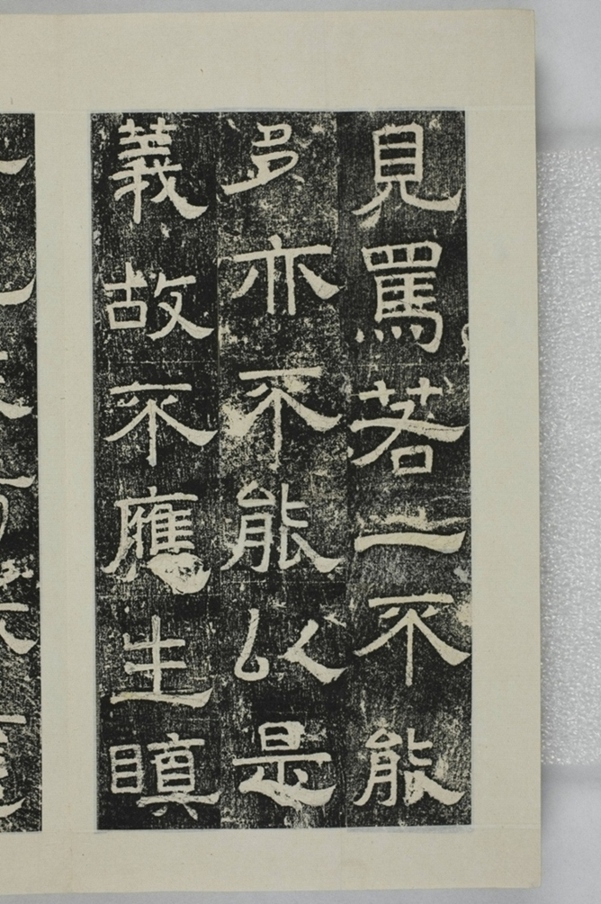 見罵若一不能
多亦不能以是
義故不應生瞋